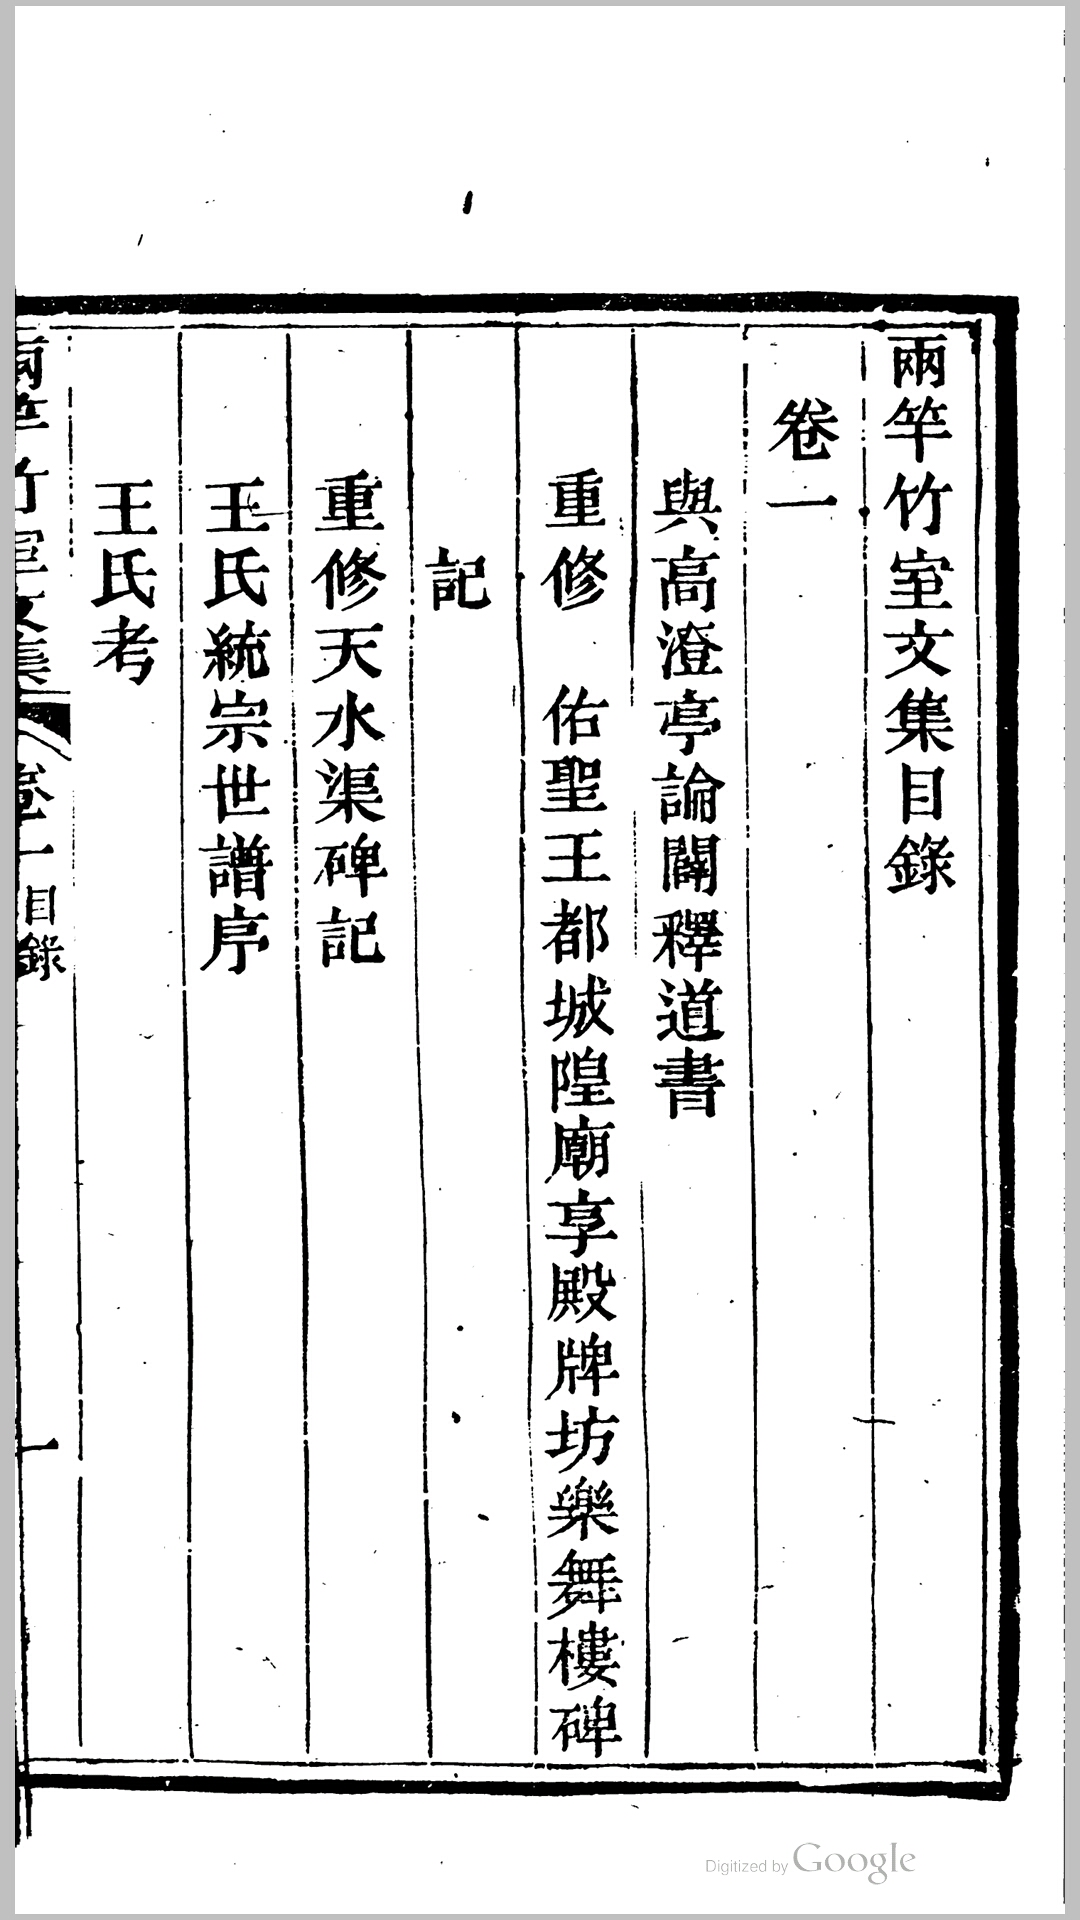 兩竿竹室文集目錄
卷一
與高澄亭論闢釋道書
重修 佑聖王都城隍廟享殿牌坊樂舞樓碑
記
重修天水渠碑記
王氏統宗世譜序
王氏考
兩竿竹室文集 卷一目錄 一
Digitized by Google